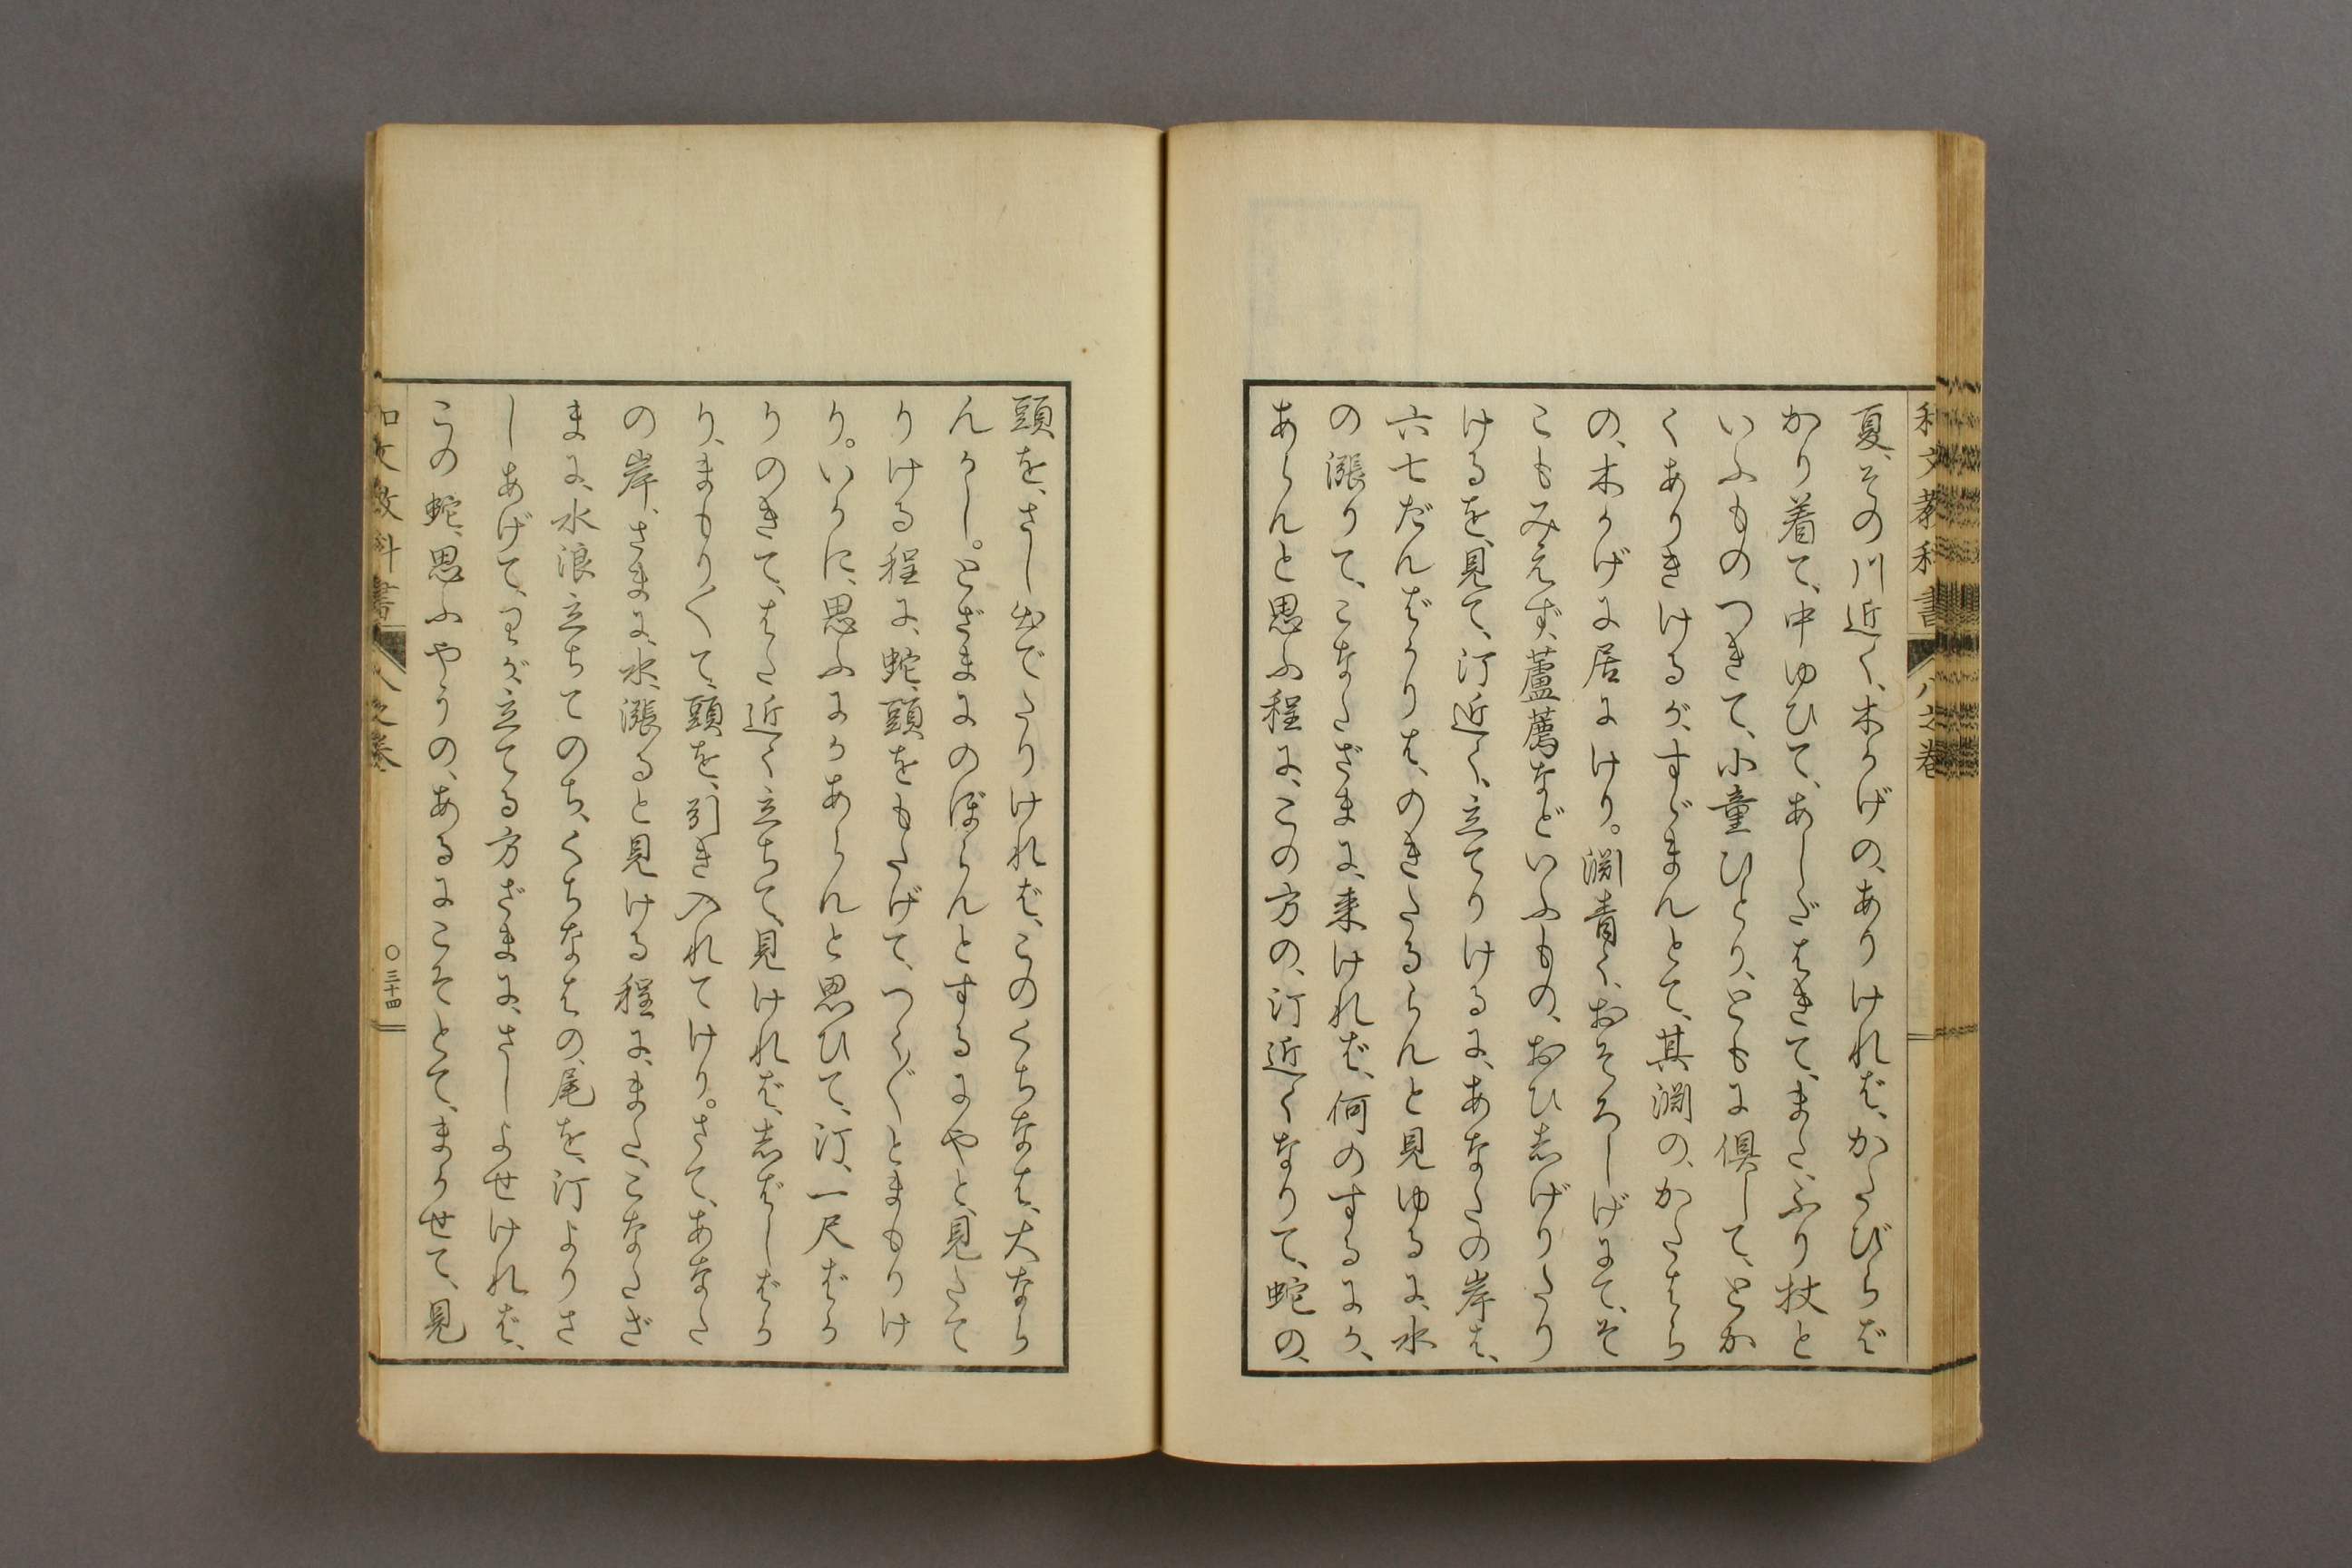 和文教科書 八之卷
夏、その川近く、木かげの、ありければ、かたびらば
かり着て、中ゆひて、あしだはきて、またふり杖と
いふものつきて、小童ひとり、ともに倶して、とか
くありきけるが、すゞまんとて、其淵の、かたはら
の、木かげに居にけり。淵青く、おそろしげにて、そ
こもみえず、蘆薦などいふもの、おひしげりたり
けるを、見て、汀近く、立てりけるに、あなたの岸は、
六七だんばかりは、のきたるらんと見ゆるに、水
の漲りて、こなたざまに、来ければ、何のするにか、
あらんと思ふ程に、この方の、汀近くなりて、蛇の、
頭を、さし出でたりければ、このくちなは、大なら
んかし。とざまにのぼらんとするにやと、見たて
りける程に、蛇、頭をもたげて、つく〴〵とまもりけ
り。いかに、思ふにかあらんと思ひて、汀、一尺ばか
りのきて、はた近く立ちて、見ければ、しばしばか
り、まもり〳〵て、頭を、引き入れてけり。さて、あなた
の岸、さまに、水、漲ると見ける程に、また、こなたざ
まに、水浪立ちてのち、くちなはの、尾を、汀よりさ
しあげて、わが、立てる方ざまに、さしよせければ、
この蛇、思ふやうの、あるにこそとて、まかせて、見
和文教科書 八之卷 〇三十四